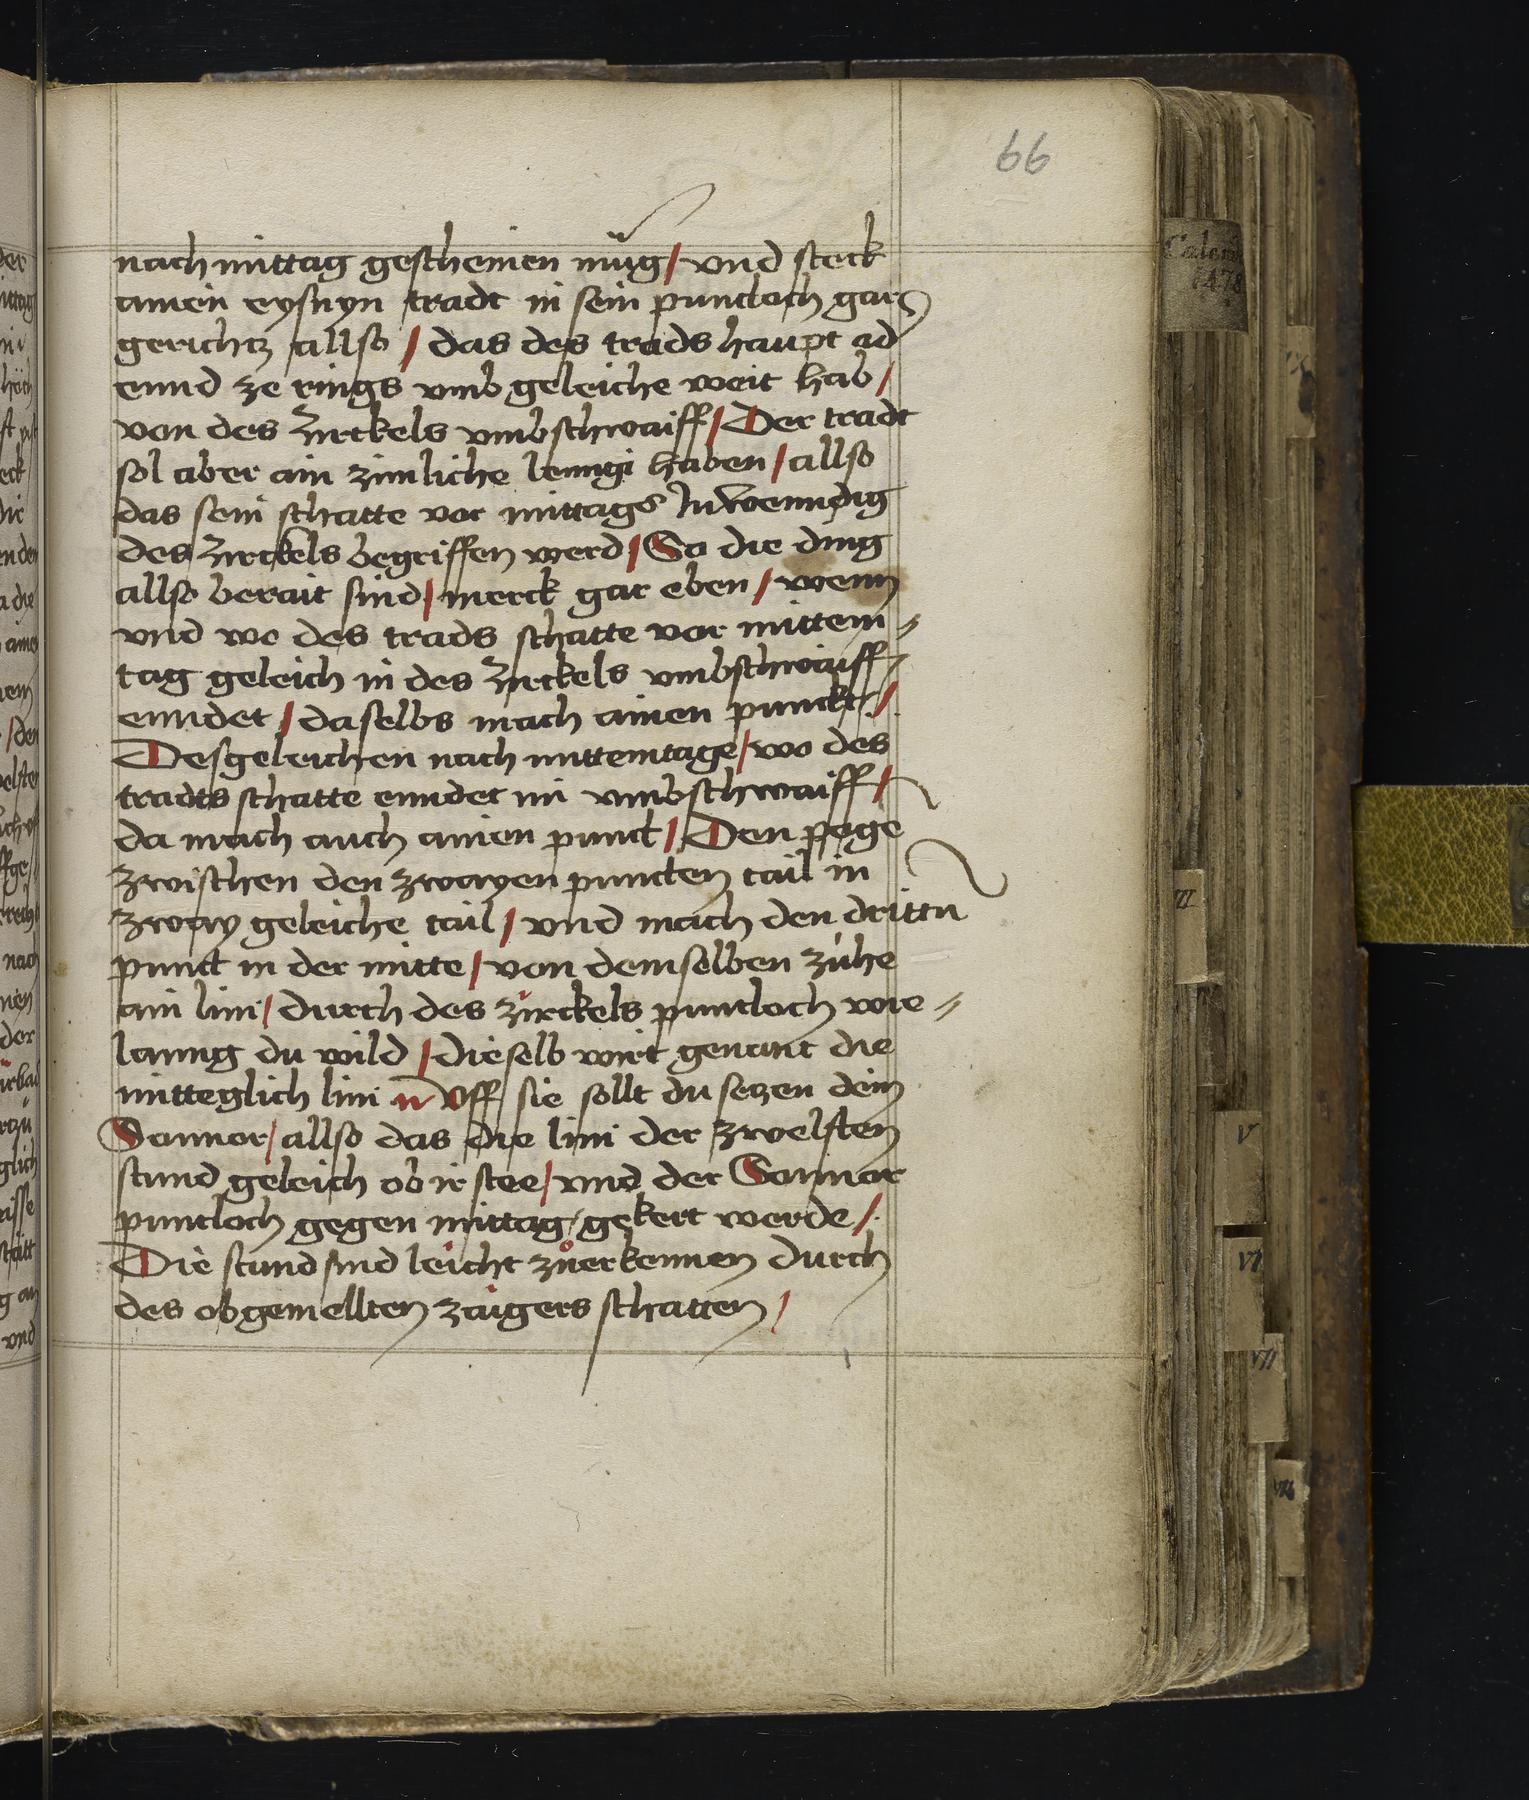 66
nach mittag gescheinen müg / vnd steck
ainen eysnyn tradt in sein puncloch gar
gerichtz allso / das des trads haupt ad
ennd ze rings vmb geleiche weit hab /
von des zirckels vmbschwaiff / Der tradt
sol aber ain zimliche lenngi haben / allso
das sein schatte vor mittags Inwenndig
des zirckels begriffen werd / So die ding
allso berait sind / merck gar eben / wenn
vnd wo des trads schatte vor mittem=
tag geleich in des zirckels vmbschwaiff
enndet / daselbs mach ainen punckt /
Desgeleichen nach mittemtage / wo des
tradts schatte enndet im vmbschwaiff /
da mach auch ainen punct / Den poge
zwischen den zwayen puncten tail in
zway geleiche tail / vnd mach den drittn
punct in der mitte / von demselben zühe
ain lini / durch des zirckels puncloch wie=
lanng du wild / dieselb wirt genant die
mitteglich lini Vff sie sollt du setzen dein
Sonnor / allso das die lini der zwelften
stund geleich ob ir stee / vnd der Sonnor
puncloch gegen mittag gekert werde /
Die stund sind leicht zuͦ erkennen durch
des obgemellten zaigers schatten /
Calend
1478
IX
III
V
VI
VII
VIII